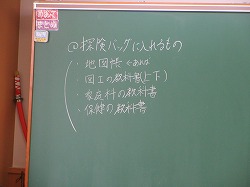 めあて
まとめ
@探険バッグに入れるもの
・地図帳 ←あれば
・図工の教科書(上下)
・家庭科の教科書
・保健の教科書